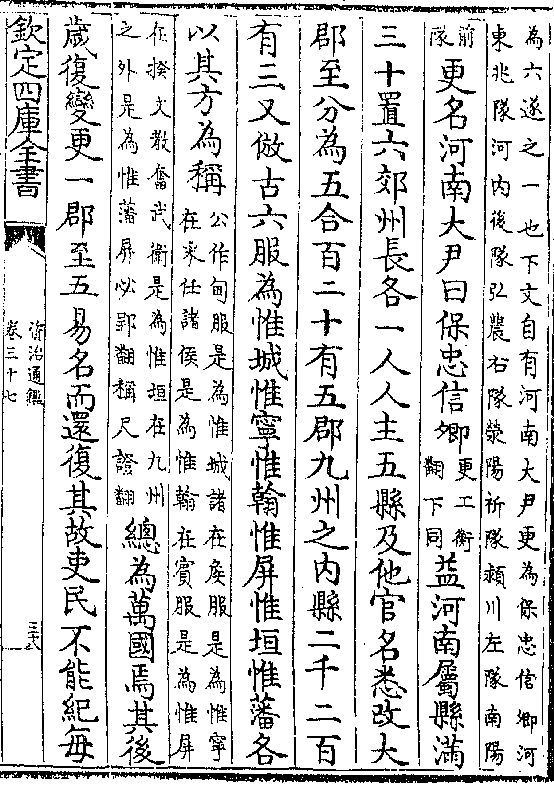 為六遂之一也下文自有河南大尹更為保忠信卿河
東兆隊河内後隊弘農右隊滎陽祈隊潁川左隊南陽
前隊更名河南大尹曰保忠信卿更工衡翻下同益河南屬縣滿
三十置六郊州長各一人人主五縣及他官名悉改大
郡至分為五合百二十有五郡九州之内縣二千二百
有三又倣古六服為惟城惟寧惟翰惟屏惟垣惟藩各
以其方為稱公作甸服是為惟城諸在侯服是為惟寧
在采任諸侯是為惟翰在賓服是為惟屏
在揆文教奮武衛是為惟垣在九州
之外是為惟藩屏必郢翻稱尺證翻總為萬國焉其後
歲復變更一郡至五易名而還復其故吏民不能紀每
欽定四庫全書
資治通鑑
卷三十七
三十八